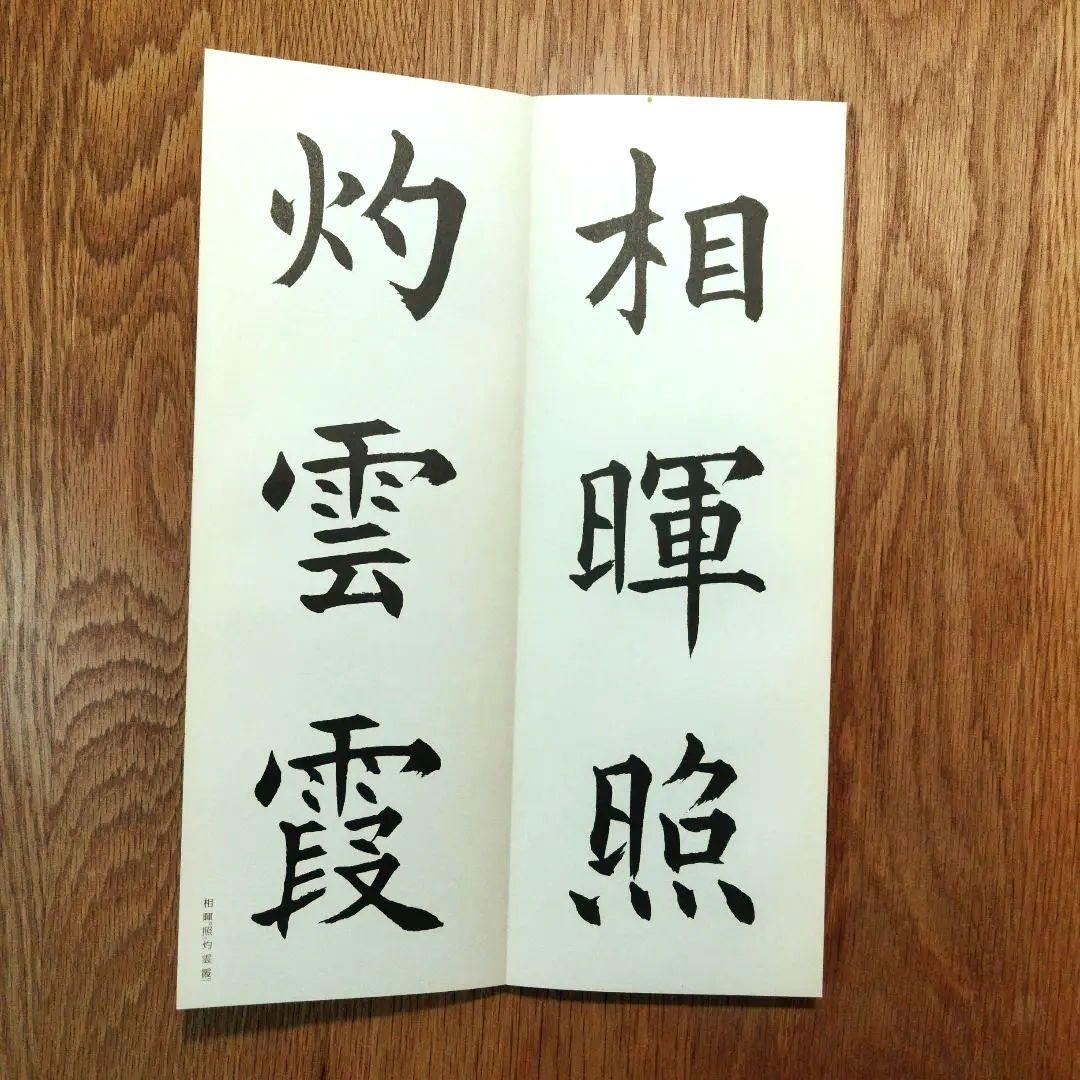 相暉照
灼雲霞
相暉照灼雲霞